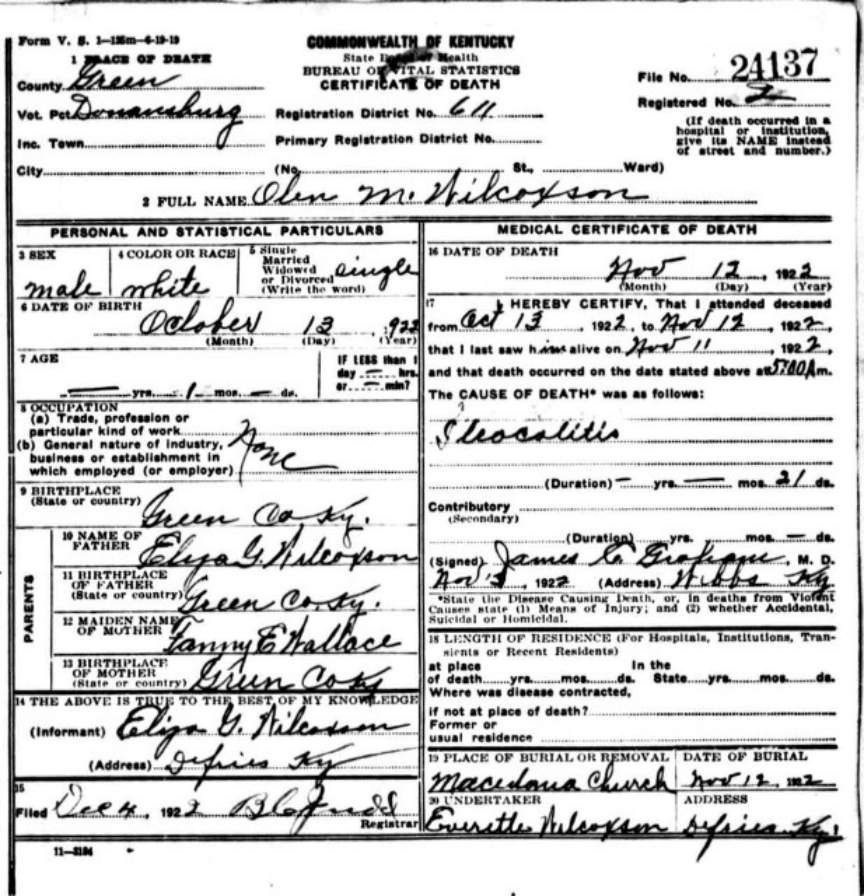 Form V. S. 1-125m-6-19-19
COMMONWEALTH OF KENTUCKY
State Board of Health
BUREAU OF VITAL STATISTICS
CERTIFICATE OF DEATH
1 PLACE OF DEATH
County Green
Vot. Pct Donansburg
Inc. Town
City
Registration District No. 611
Primary Registration District No.
(No. St., Ward)
File No. 24137
Registered No. 2
(If death occurred in a
hospital or institution,
give its NAME instead
of street and number.)
2 FULL NAME Olen M. Wilcoxson
PERSONAL AND STATISTICAL PARTICULARS
3 SEX
male
4 COLOR OR RACE
white
5 Single
Married
Widowed
or Divorced
(Write the word)
single
6 DATE OF BIRTH
October 13 , 922
(Month) (Day) (Year)
7 AGE
— yrs. 1 mos. — ds.
IF LESS than 1
day — hrs.
or — min?
8 OCCUPATION
(a) Trade, profession or
particular kind of work
(b) General nature of industry,
business or establishment in
which employed (or employer)
None
9 BIRTHPLACE
(State or country)
Green Co. Ky.
PARENTS
10 NAME OF
FATHER
Eliza G. Wilcoxson
11 BIRTHPLACE
OF FATHER
(State or country)
Green Co. Ky.
12 MAIDEN NAME
OF MOTHER
Fanny E Wallace
13 BIRTHPLACE
OF MOTHER
(State or country)
Green Co Ky
14 THE ABOVE IS TRUE TO THE BEST OF MY KNOWLEDGE
(Informant) Eliza G. Wilcoxson
(Address) Defries Ky
15
Filed Dec 4, 1922
Registrar
11-3184
MEDICAL CERTIFICATE OF DEATH
16 DATE OF DEATH
Nov 12 , 1922
(Month) (Day) (Year)
17 I HEREBY CERTIFY, That I attended deceased
from Oct 13 , 1922, to Nov 12 , 1922,
that I last saw him alive on Nov 11 , 1922,
and that death occurred on the date stated above at 5:00 A m.
The CAUSE OF DEATH* was as follows:
Ileocolitis
(Duration) — yrs. — mos. 21 ds.
Contributory
(Secondary)
(Duration) yrs. mos. — ds.
(Signed) James C. Graham, M. D.
Nov , 1922 (Address) Webbs Ky
*State the Disease Causing Death, or, in deaths from Violent
Causes state (1) Means of Injury; and (2) whether Accidental,
Suicidal or Homicidal.
18 LENGTH OF RESIDENCE (For Hospitals, Institutions, Tran-
sients or Recent Residents)
at place In the
of death yrs. mos. ds. State yrs. mos. ds.
Where was disease contracted,
if not at place of death?
Former or
usual residence
19 PLACE OF BURIAL OR REMOVAL
Macedona Church
DATE OF BURIAL
Nov 12, 1922
20 UNDERTAKER
Everette Wilcoxson
ADDRESS
Defries Ky